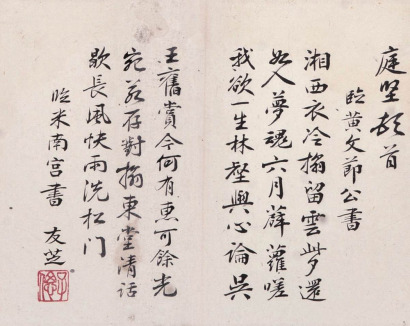 庭坚頓首
临黄文節公書
湘西衣冷榻留雲此夕還
如入夢魂六月薜蘿嗟
我欲一生林壑與心論吳
王舊賞今何有惠可餘光
宛若存對榻東堂清話
歇長風快雨洗松门
临米南宫書 友芝